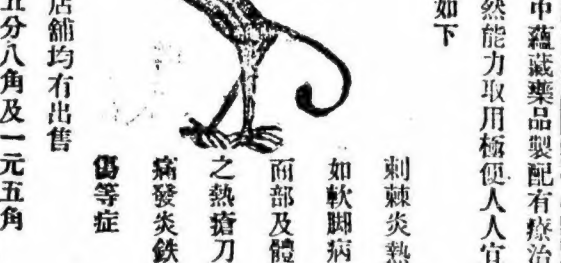 中蘊藏藥品製配有療治
然能力取用極便人人宜
如下
刺棘炎熱
如軟脚病
面部及體
之熱瘡刀
痛發炎鉄
傷等症
店舖均有出售
五分八角及一元五角